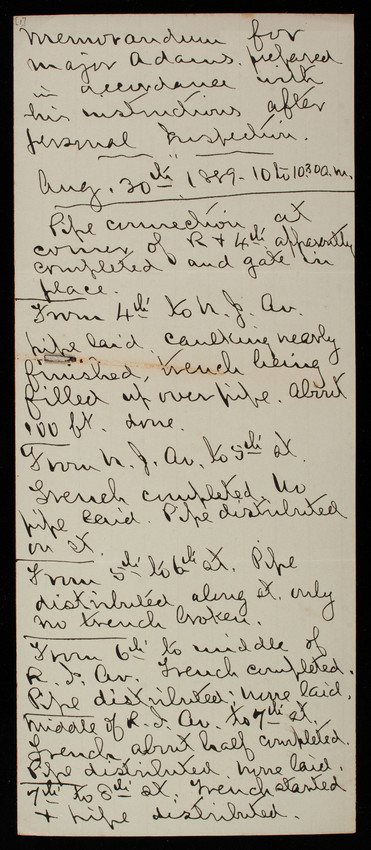 [1]
Memorandum for
Major Adams. prepared
in accordance with
his instructions after
personal Inspection.
Aug. 30th 1889 - 10 to 10.30 a.m.
Pipe connection at
corner of R + 4th apparently
completed and gate in
place.
From 4th to N. J. Av.
pipe laid, caulking nearly
finished, trench being
filled up over pipe. About
100 ft. done.
From N. J. Av. to 5th st.
Trench completed. No
pipe laid. Pipe distributed
on st.
From 5th to 6th st. Pipe
distributed along st. only
no trench broken.
From 6th to middle of
R. I. Av. Trench completed.
Pipe distributed; none laid.
Middle of R. I. Av. to 7th st.
Trench about half completed.
Pipe distributed, none laid.
7th to 8th st. Trench started
+ pipe distributed.